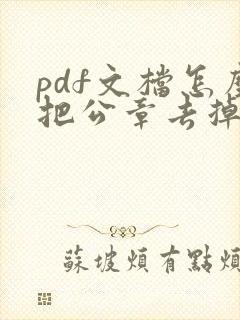 pdf文檔怎麼
把公章去掉
蘇坡煩有點煩